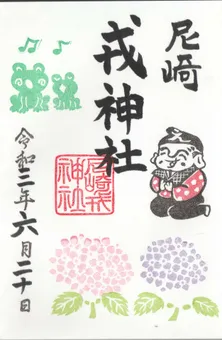 尼崎
戎神社
尼崎戎
神社
令和三年六月二十日